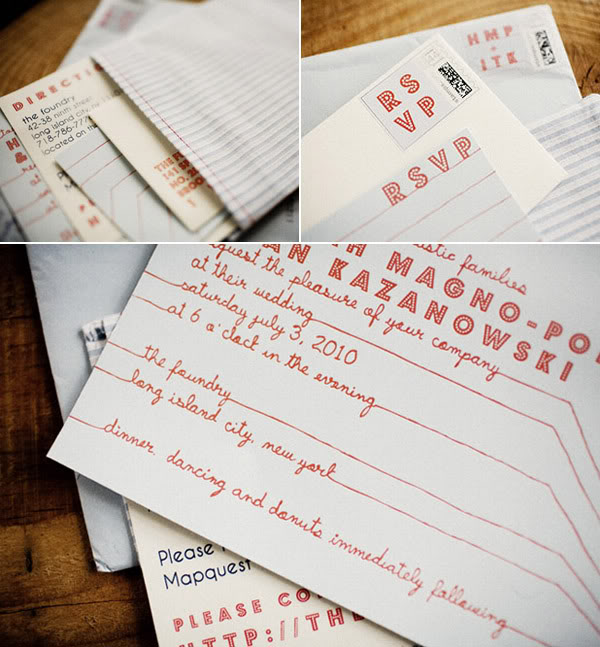 DIRECTI
the foundry
42-38 ninth street
long island city, ny
718-786-777
located on th
THE F
141 SP
NO. 2
BROO
1
HMP
+
ITK
RS
VP
RSVP
istic families
TH MAGNO-PO
AN KAZANOWSKI
quest the pleasure of your company
at their wedding
saturday july 3, 2010
at 6 o'clock in the evening
the foundry
long island city, new york
dinner, dancing and donuts immediately following
Please
Mapquest
PLEASE CO
HTTP://THE